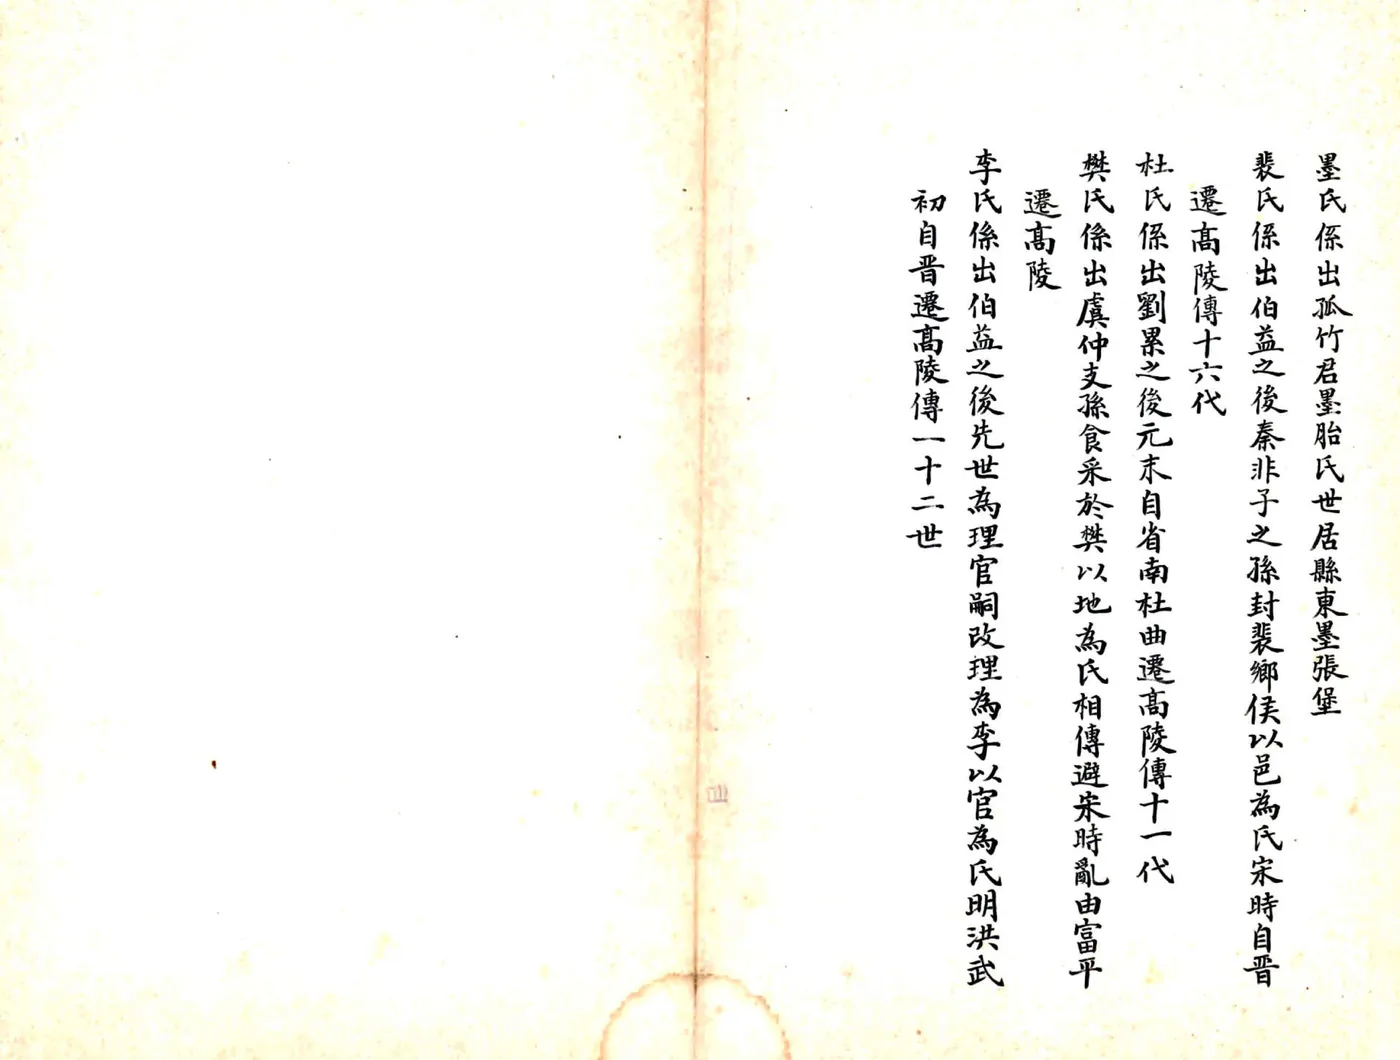 墨氏係出孤竹君墨胎氏世居縣東墨張堡
裴氏係出伯益之後秦非子之孫封裴鄉侯以邑為氏宋時自晋
遷髙陵傳十六代
杜氏係出劉累之後元末自省南杜曲遷髙陵傳十一代
樊氏係出虞仲支孫食采於樊以地為氏相傳避宋時亂由富平
遷髙陵
李氏係出伯益之後先世為理官嗣改理為李以官為氏明洪武
初自晋遷髙陵傳一十二世